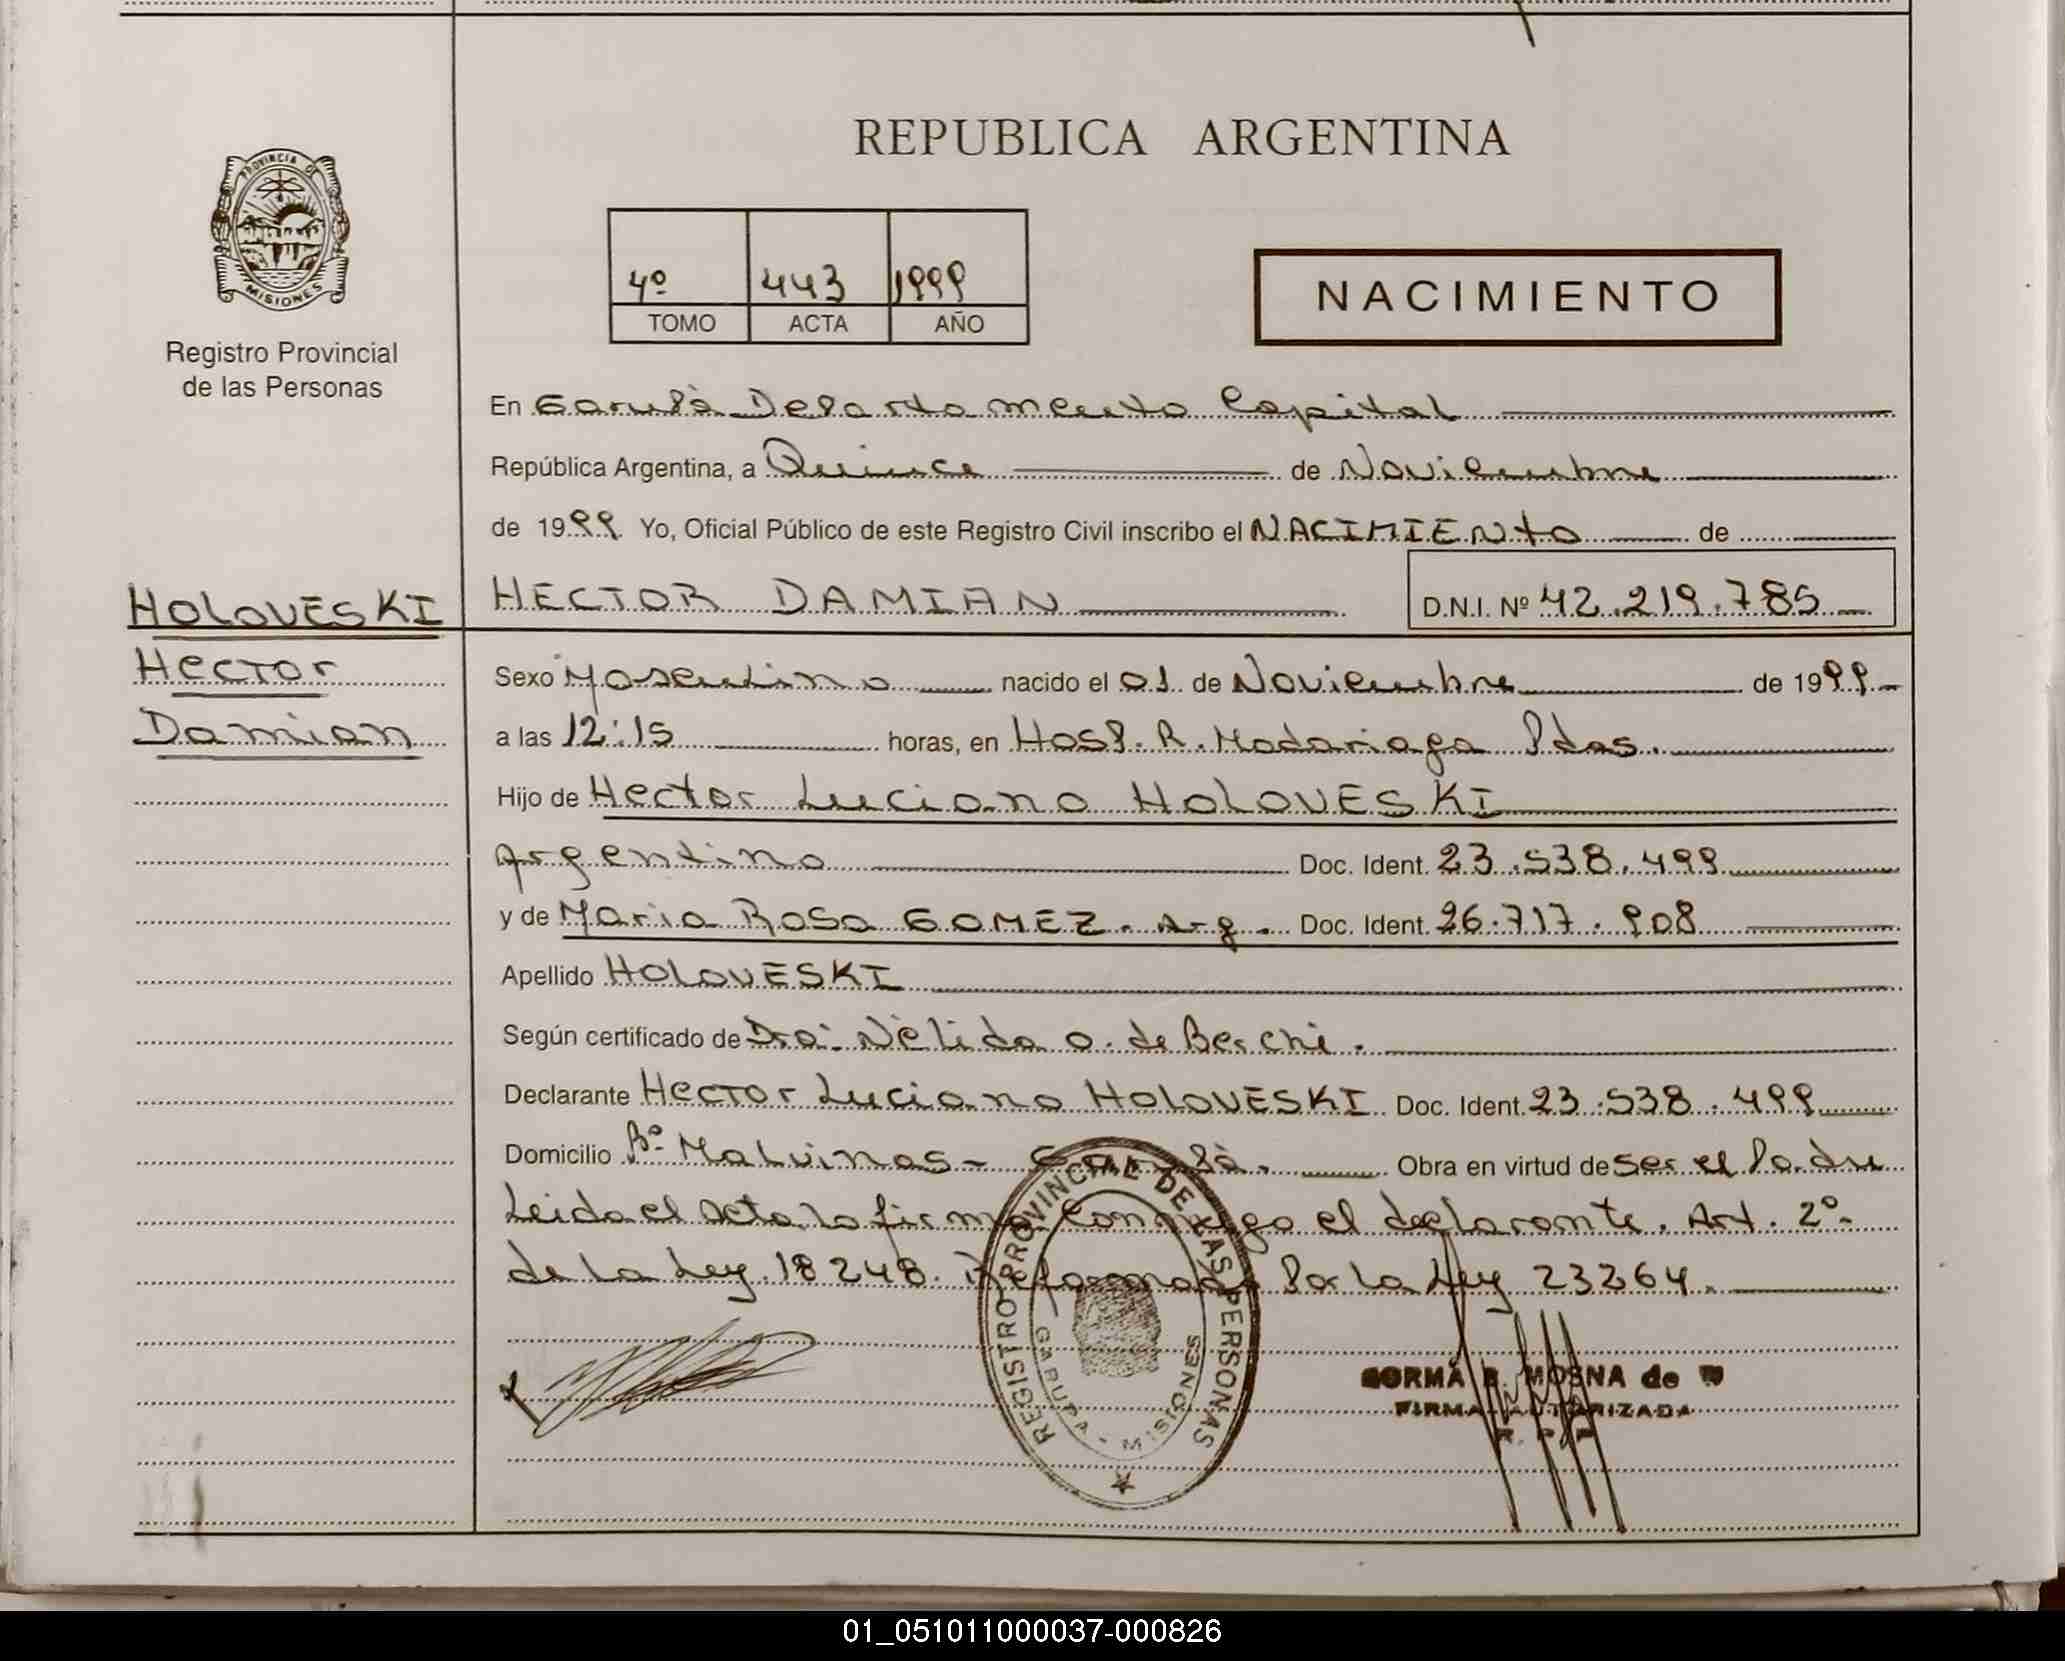 PROVINCIA DE
MISIONES
Registro Provincial
de las Personas
REPUBLICA ARGENTINA
4º 443 1999
TOMO ACTA AÑO
NACIMIENTO
En Garupá Departamento Capital
República Argentina, a Quince de Noviembre
de 1999 Yo, Oficial Público de este Registro Civil inscribo el NACIMIENTO de
HOLOVESKI
Hector
Damian
HECTOR DAMIAN D.N.I. Nº 42.219.785
Sexo Masculino nacido el 01 de Noviembre de 1999
a las 12:15 horas, en Hosp. R. Madariaga Pdas.
Hijo de Hector Luciano HOLOVESKI
Argentino Doc. Ident. 23.538.499
y de Maria Rosa GOMEZ. Arg. Doc. Ident. 26.717.908
Apellido HOLOVESKI
Según certificado de Dra. Nélida O. de Berchi.
Declarante Hector Luciano HOLOVESKI Doc. Ident. 23.538.499
Domicilio Bº Malvinas - Garupá. Obra en virtud de ser el Padre
Leida el acta la firma conmigo el declarante. Art. 2º
de la Ley 18248. Reformada Por la Ley 23264.
REGISTRO PROVINCIAL DE LAS PERSONAS
GARUPA - MISIONES
MOSNA de
FIRMA AUTORIZADA
R. P. P.
01_051011000037-000826